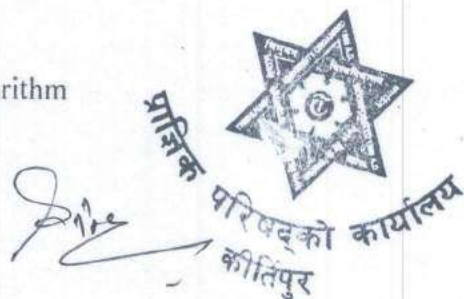 rithm
प्राज्ञिक परिषद्को कार्यालय
कीर्तिपुर